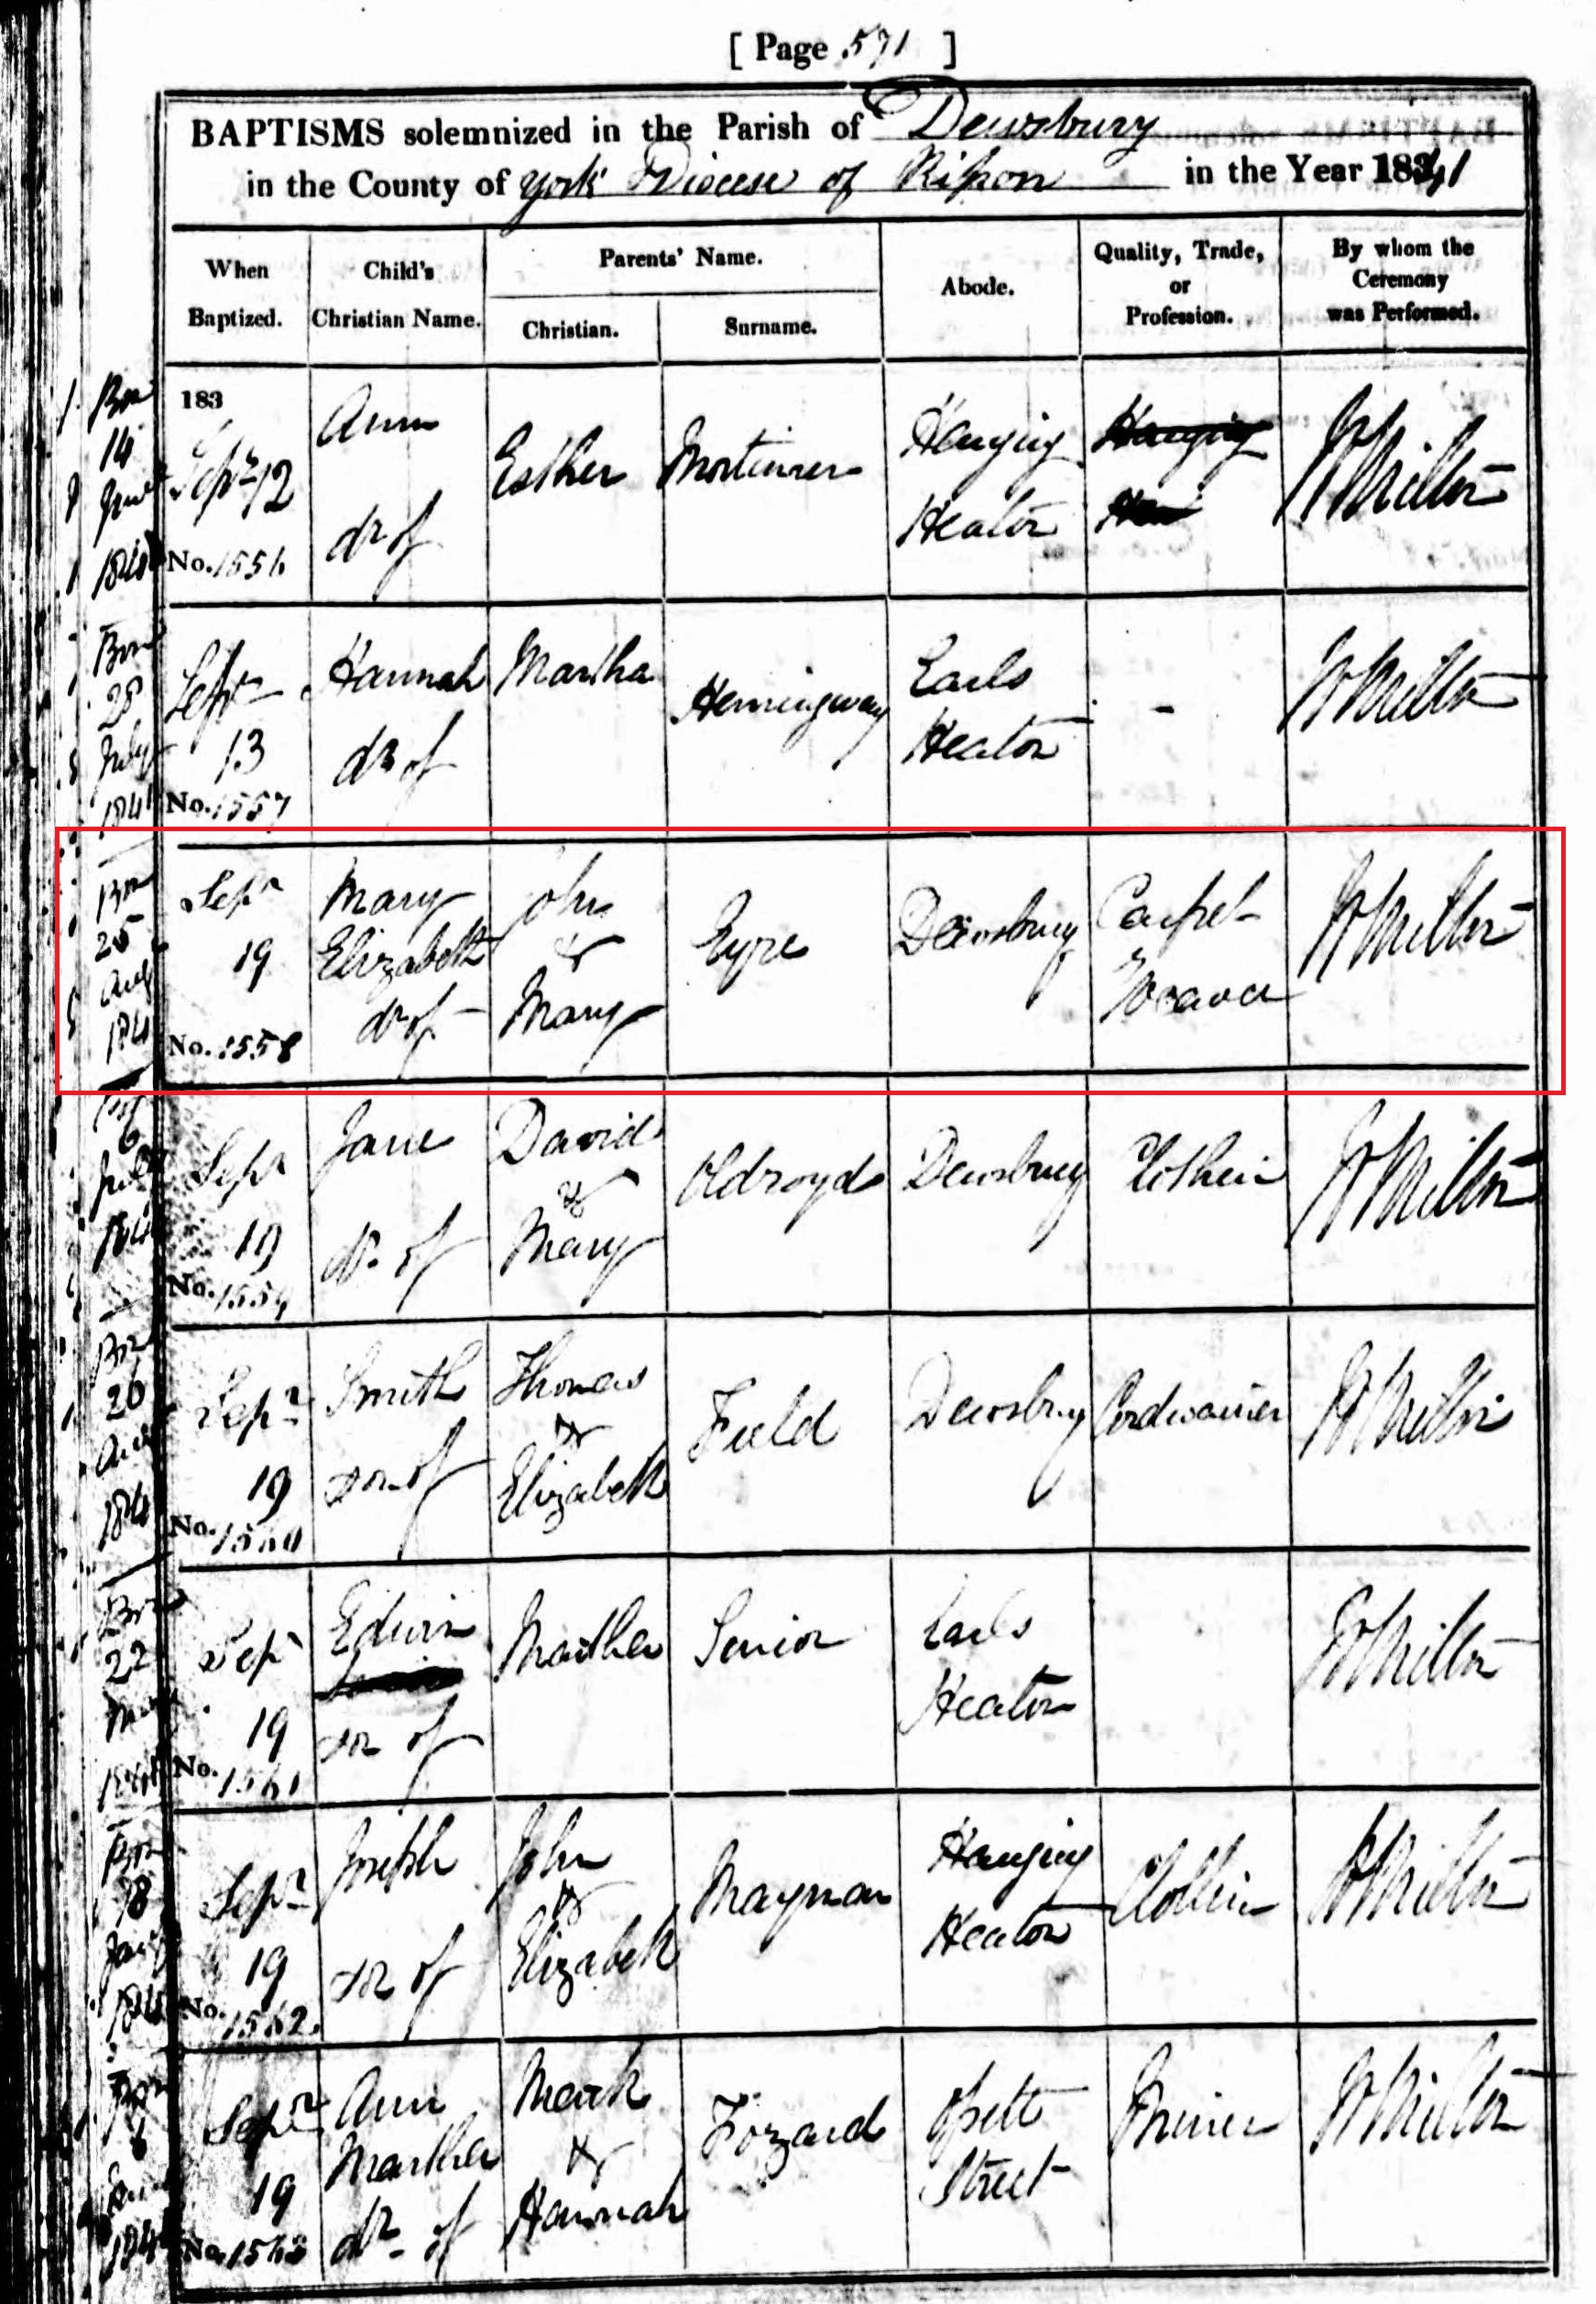 [ Page 571 ]
BAPTISMS solemnized in the Parish of Dewsbury
in the County of York Diocese of Ripon in the Year 1841
When Baptized.
Child's Christian Name.
Parents' Name.
Christian.
Surname.
Abode.
Quality, Trade, or Profession.
By whom the Ceremony was Performed.
Born 14 June 184
183
Septr 12
No. 1556
Ann
dr of
Esther
Mortimer
Hanging
Heaton
Hanging
Hea
Born 28 July 1841
Septr
13
No. 1557
Hannah
dr of
Martha
Hemingway
Earls
Heaton
-
Born 25 Aug 184
Sepr
19
No. 1558
Mary
Elizabeth
dr of
John
&
Mary
Eyre
Dewsbury
Carpet
Weaver
6 July 184
Sepr
19
No. 1559
Jane
dr of
David
&
Mary
Oldroyd
Dewsbury
Clothier
Born 26 Aug 184
Sepr
19
No. 1560
Smith
son of
Thomas
&
Elizabeth
Field
Dewsbury
Cordwainer
Born 22
Sepr
19
No. 1561
Edwin
son of
Martha
Senior
Earls
Heaton
Born
Sepr
19
No. 1562.
Joseph
son of
John
&
Elizabeth
Mayman
Hanging
Heaton
Clothier
Born 6
Sepr
19
No. 1563
Ann
Martha
dr of
Mark
&
Hannah
Fozard
Street
Miner